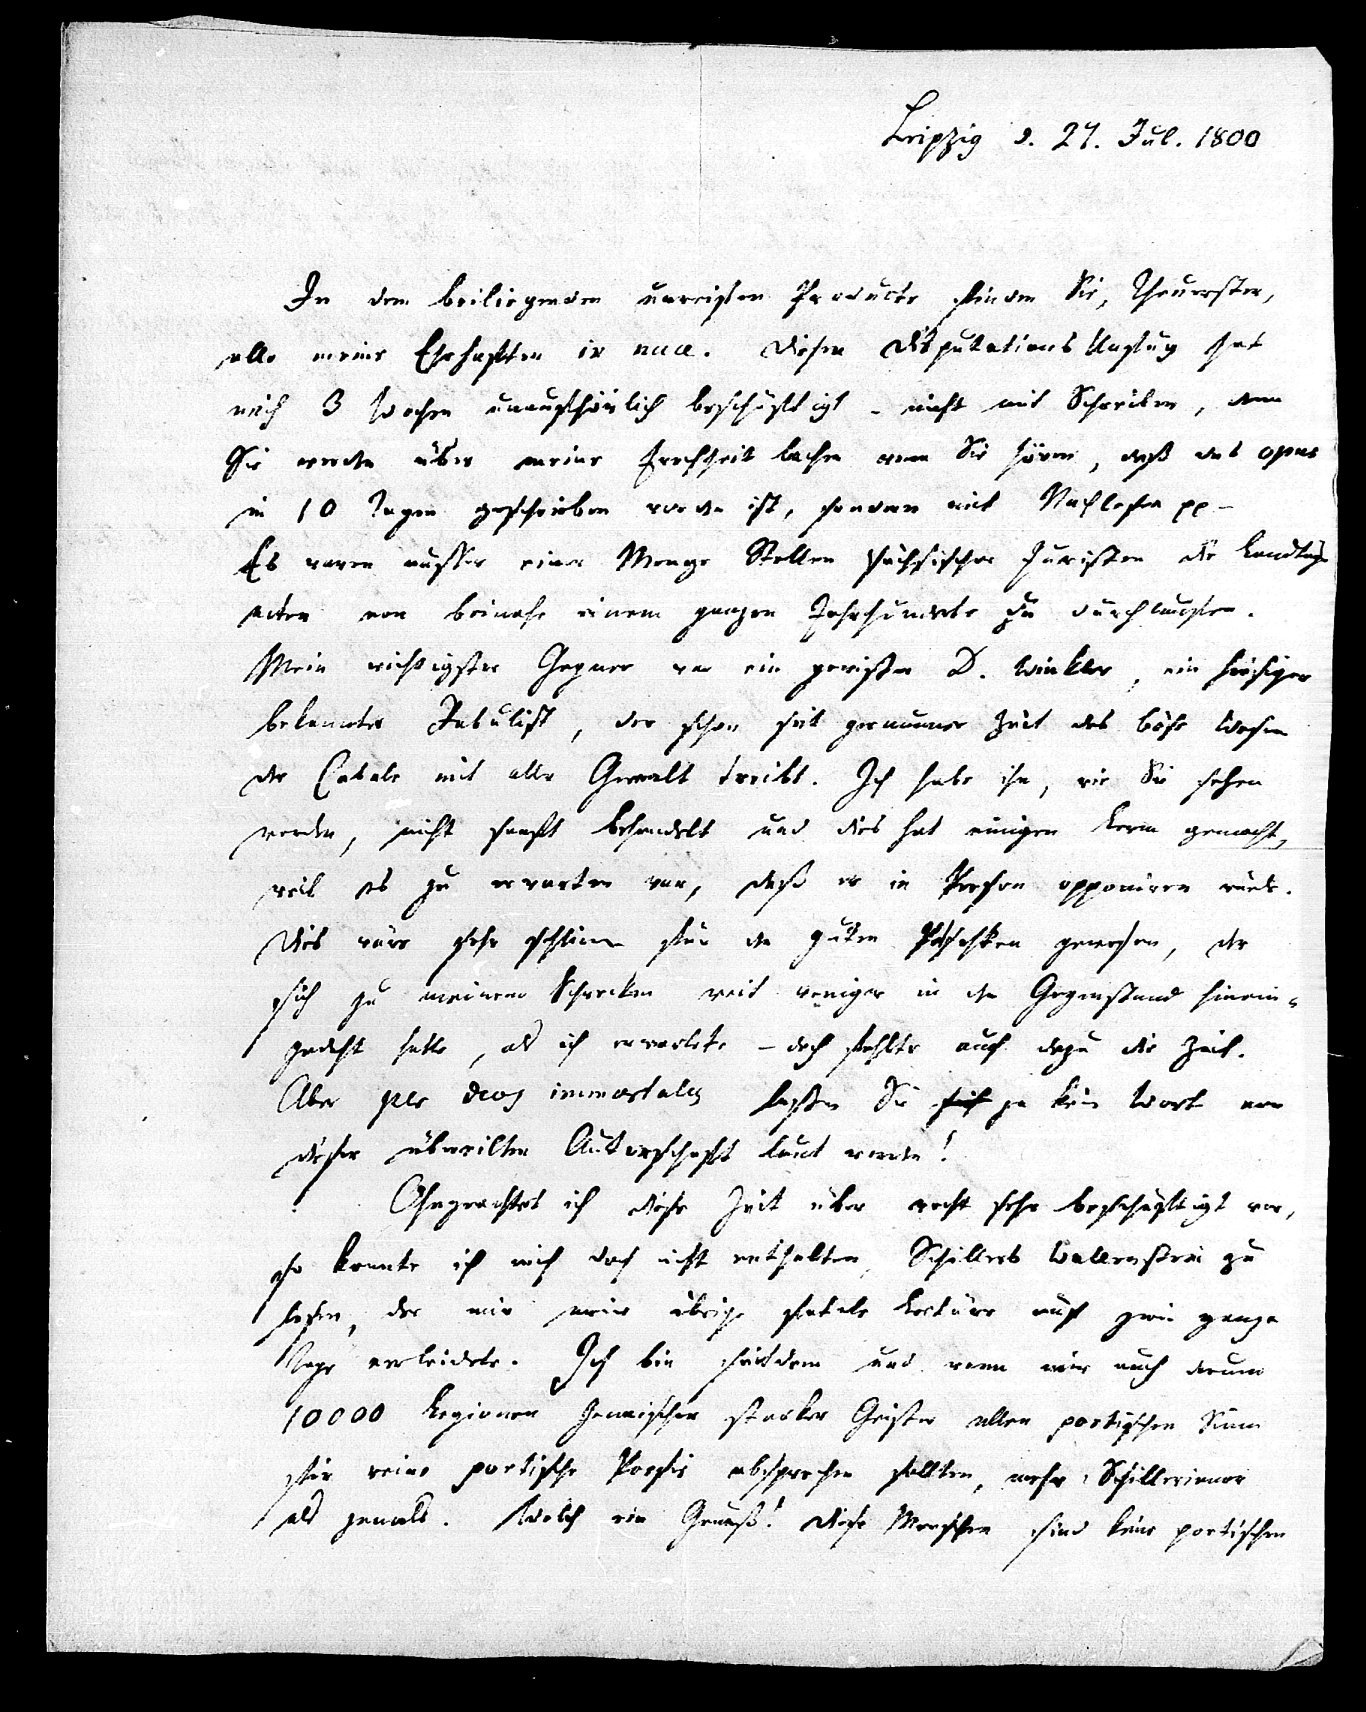 Leipzig d. 27. Jul. 1800
In dem beiliegenden unreifen Producte finden Sie, Theuerster,
alle meine Ehehaften in nuce. Dieser Disputations Unfug hat
mich 3 Wochen unaufhörlich beschäftigt – nicht mit Schreiben, denn
Sie werden über meine Frechheit lachen wenn Sie hören, daß das opus
in 10 Tagen geschrieben worden ist, sondern mit Nachlesen pp –
Es waren ausser einer Menge Stellen sächsischer Juristen die Landtags
acten von beinahe einem ganzen Jahrhunderte zu durchlaufen.
Mein wichtigster Gegner war ein gewisser D. Winkler, ein hiesiger
bekannter Fabulist, der schon seit geraumer Zeit das böse Wesen
der Cabale mit aller Gewalt treibt. Ich habe ihn, wie Sie sehen
werden, nicht sanft behandelt und dies hat einigen Lerm gemacht,
weil es zu erwarten war, daß er in Person opponiren würde.
Dies wäre sehr schlimm für den guten gewesen, der
sich zu meinem Schrecken weit weniger in den Gegenstand hinein-
gedacht hatte, als ich erwartete – doch fehlte auch dazu die Zeit.
Aber per deos immortales lassen Sie ja kein Wort von
dieser übereilten Autorschaft laut werden!
Ohngeachtet ich diese Zeit über recht sehr beschäftigt war,
so konnte ich mich doch nicht enthalten, Schillers Wallenstein zu
lesen, der mir meine übrige fatale Lectüre auf zwei ganze
Tage verleidete. Ich bin seitdem und wenn mir auch darum
10000 Legionen Jenaischer starker Geister allen poetischen Sinn
für reine poetische Poesie absprechen sollten, mehr Schillerianer
als jemals. Welch ein Genuß! Diese Menschen sind keine poetischen